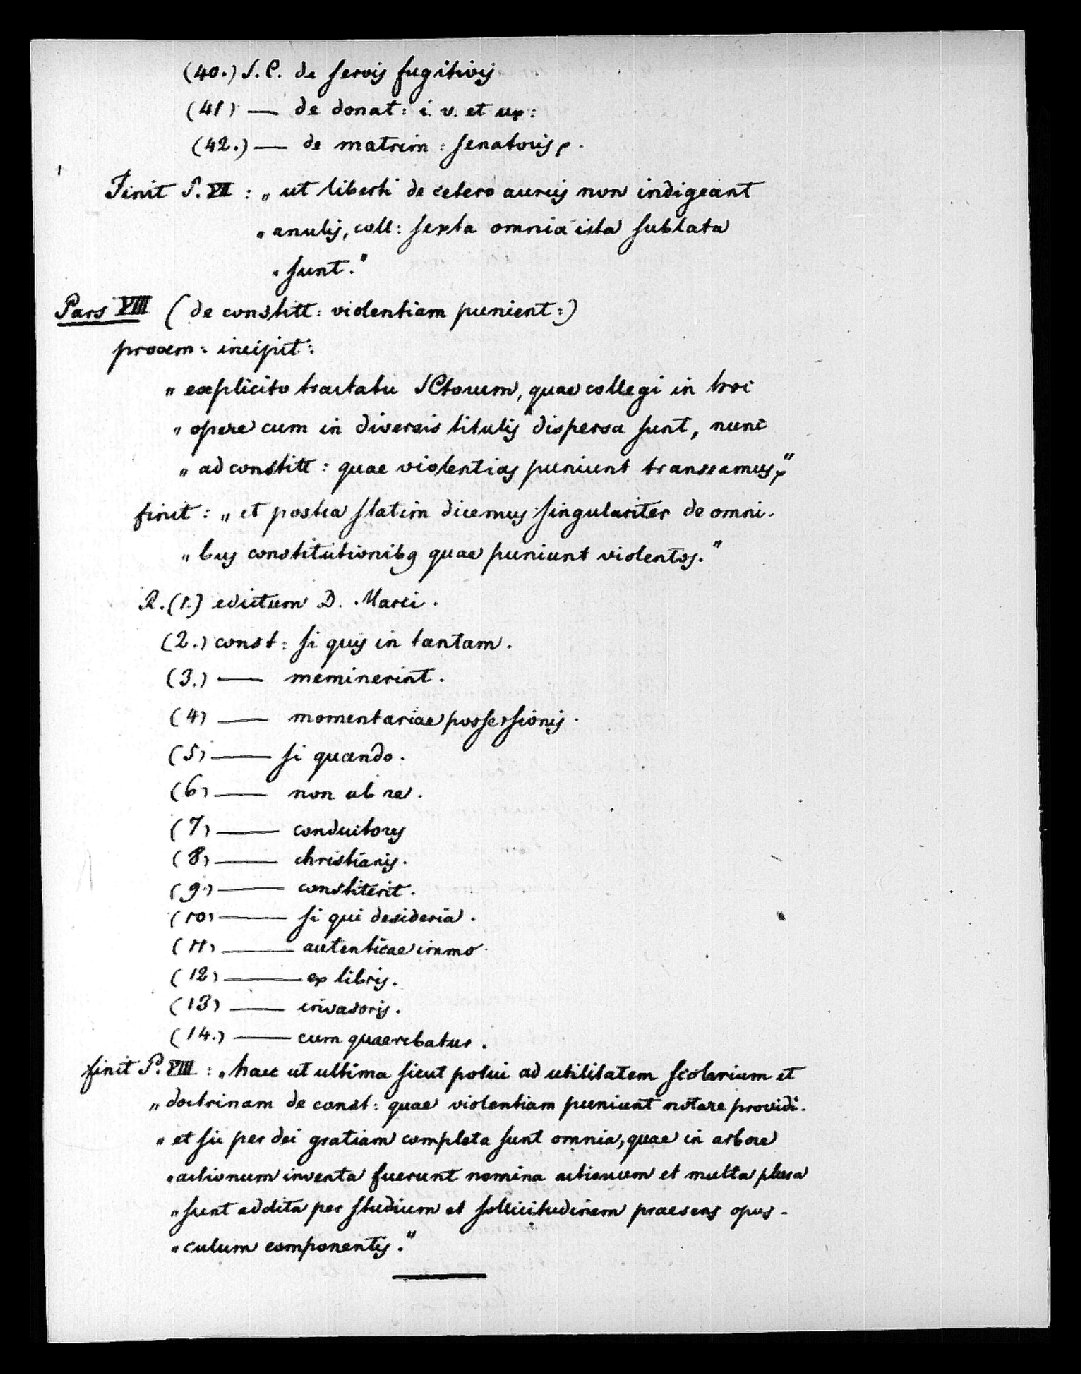 (40.) S. C. de servis fugitivis
(41) — de donat: i. v. et ux:
(42.) — de matrim: senatoris.
Finit P. VII : „ut liberti de cetero aureis non indigeant
„anulis, coll: sexta omnia ista sublata
„sunt.“
Pars VIII (de constitt: violentiam punient:)
prooem: incipit:
„explicito tractatu SCtorum, quae collegi in hoc
„opere cum in diversis titulis dispersa sunt, nunc
„ad constitt: quae violentias puniunt transeamus,“
finit: „et postea statim dicemus singulariter de omni-
„bus constitutionibq quae puniunt violentos.“
R. (1.) edictum D. Marci.
(2.) const: si quis in tantam.
(3.) — meminerint.
(4) — momentariae possessionis.
(5) — si quando.
(6) — non ab re.
(7) — conductores
(8) — christianis.
(9.) — constiterit.
(10) — si qui desideria.
(11) — autenticae immo
(12) — ex libris.
(13) — invasoris.
(14.) — cum quaerebatur.
finit P. VIII : „haec ut ultima sicut potui ad utilitatem scolarium et
„doctrinam de const: quae violentiam puniunt notare providi.
„et sic per dei gratiam completa sunt omnia, quae in arbore
„actionum inventa fuerunt nomina actionum et multa plura
„sunt addita per studium et sollicitudinem praesens opus-
„culum componentis.“